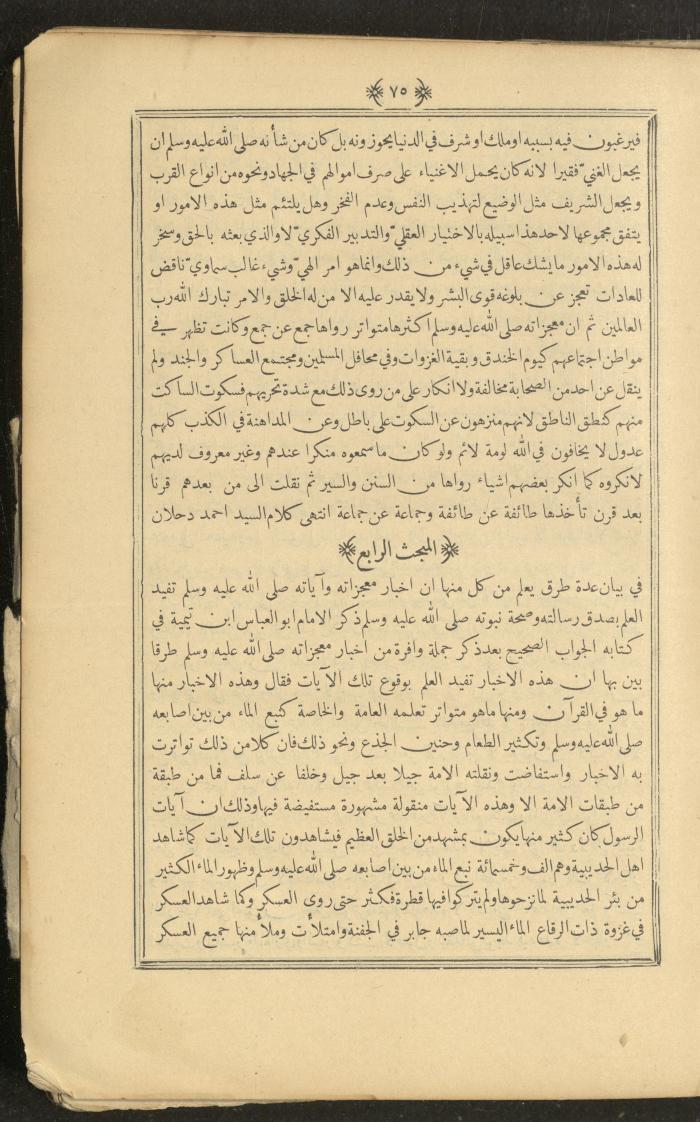 ٧٥
فيرغبون فيه بسببه او ملك او شرف في الدنيا يحوزونه بل كان من شأنه صلى الله عليه وسلم ان
يجعل الغنيّ فقيرا لانه كان يحمل الاغنياء على صرف اموالهم في الجهاد ونحوه من انواع القرب
ويجعل الشريف مثل الوضيع لتهذيب النفس وعدم الفخر وهل يلتئم مثل هذه الامور او
يتفق مجموعها لاحد هذا سبيله بالاختيار العقليّ والتدبير الفكريّ لا والذي بعثه بالحق وسخر
له هذه الامور ما يشك عاقل في شيء من ذلك وانما هو امر الهيّ وشيء غالب سماويّ ناقض
للعادات تعجز عن بلوغه قوى البشر ولا يقدر عليه الا من له الخلق والامر تبارك الله رب
العالمين ثم ان معجزاته صلى الله عليه وسلم اكثرها متواتر رواها جمع عن جمع وكانت تظهر في
مواطن اجتماعهم كيوم الخندق وبقية الغزوات وفي محافل المسلمين ومجتمع العساكر والجند ولم
ينقل عن احد من الصحابة مخالفة ولا انكار على من روى ذلك مع شدة تحريهم فسكوت الساكت
منهم كنطق الناطق لانهم منزهون عن السكوت على باطل وعن المداهنة في الكذب كلهم
عدول لا يخافون في الله لومة لائم ولو كان ما سمعوه منكرا عندهم وغير معروف لديهم
لانكروه كما انكر بعضهم اشياء رواها من السنن والسير ثم نقلت الى من بعدهم قرنا
بعد قرن تأخذها طائفة عن طائفة وجماعة عن جماعة انتهى كلام السيد احمد دحلان
المبحث الرابع
في بيان عدة طرق يعلم من كل منها ان اخبار معجزاته وآياته صلى الله عليه وسلم تفيد
العلم بصدق رسالته وصحة نبوته صلى الله عليه وسلم ذكر الامام ابو العباس ابن تيمية في
كتابه الجواب الصحيح بعد ذكر جملة وافرة من اخبار معجزاته صلى الله عليه وسلم طرقا
بين بها ان هذه الاخبار تفيد العلم بوقوع تلك الآيات فقال وهذه الاخبار منها
ما هو في القرآن ومنها ما هو متواتر تعلمه العامة والخاصة كنبع الماء من بين اصابعه
صلى الله عليه وسلم وتكثير الطعام وحنين الجذع ونحو ذلك فان كلا من ذلك تواترت
به الاخبار واستفاضت ونقلته الامة جيلا بعد جيل وخلفا عن سلف فما من طبقة
من طبقات الامة الا وهذه الآيات منقولة مشهورة مستفيضة فيها وذلك ان آيات
الرسول كان كثير منها يكون بمشهد من الخلق العظيم فيشاهدون تلك الآيات كما شاهد
اهل الحديبية وهم الف وخمسمائة نبع الماء من بين اصابعه صلى الله عليه وسلم وظهور الماء الكثير
من بئر الحديبية لما نزحوها ولم يتركوا فيها قطرة فكثر حتى روى العسكر وكما شاهد العسكر
في غزوة ذات الرقاع الماء اليسير لما صبه جابر في الجفنة وامتلأت وملأ منها جميع العسكر